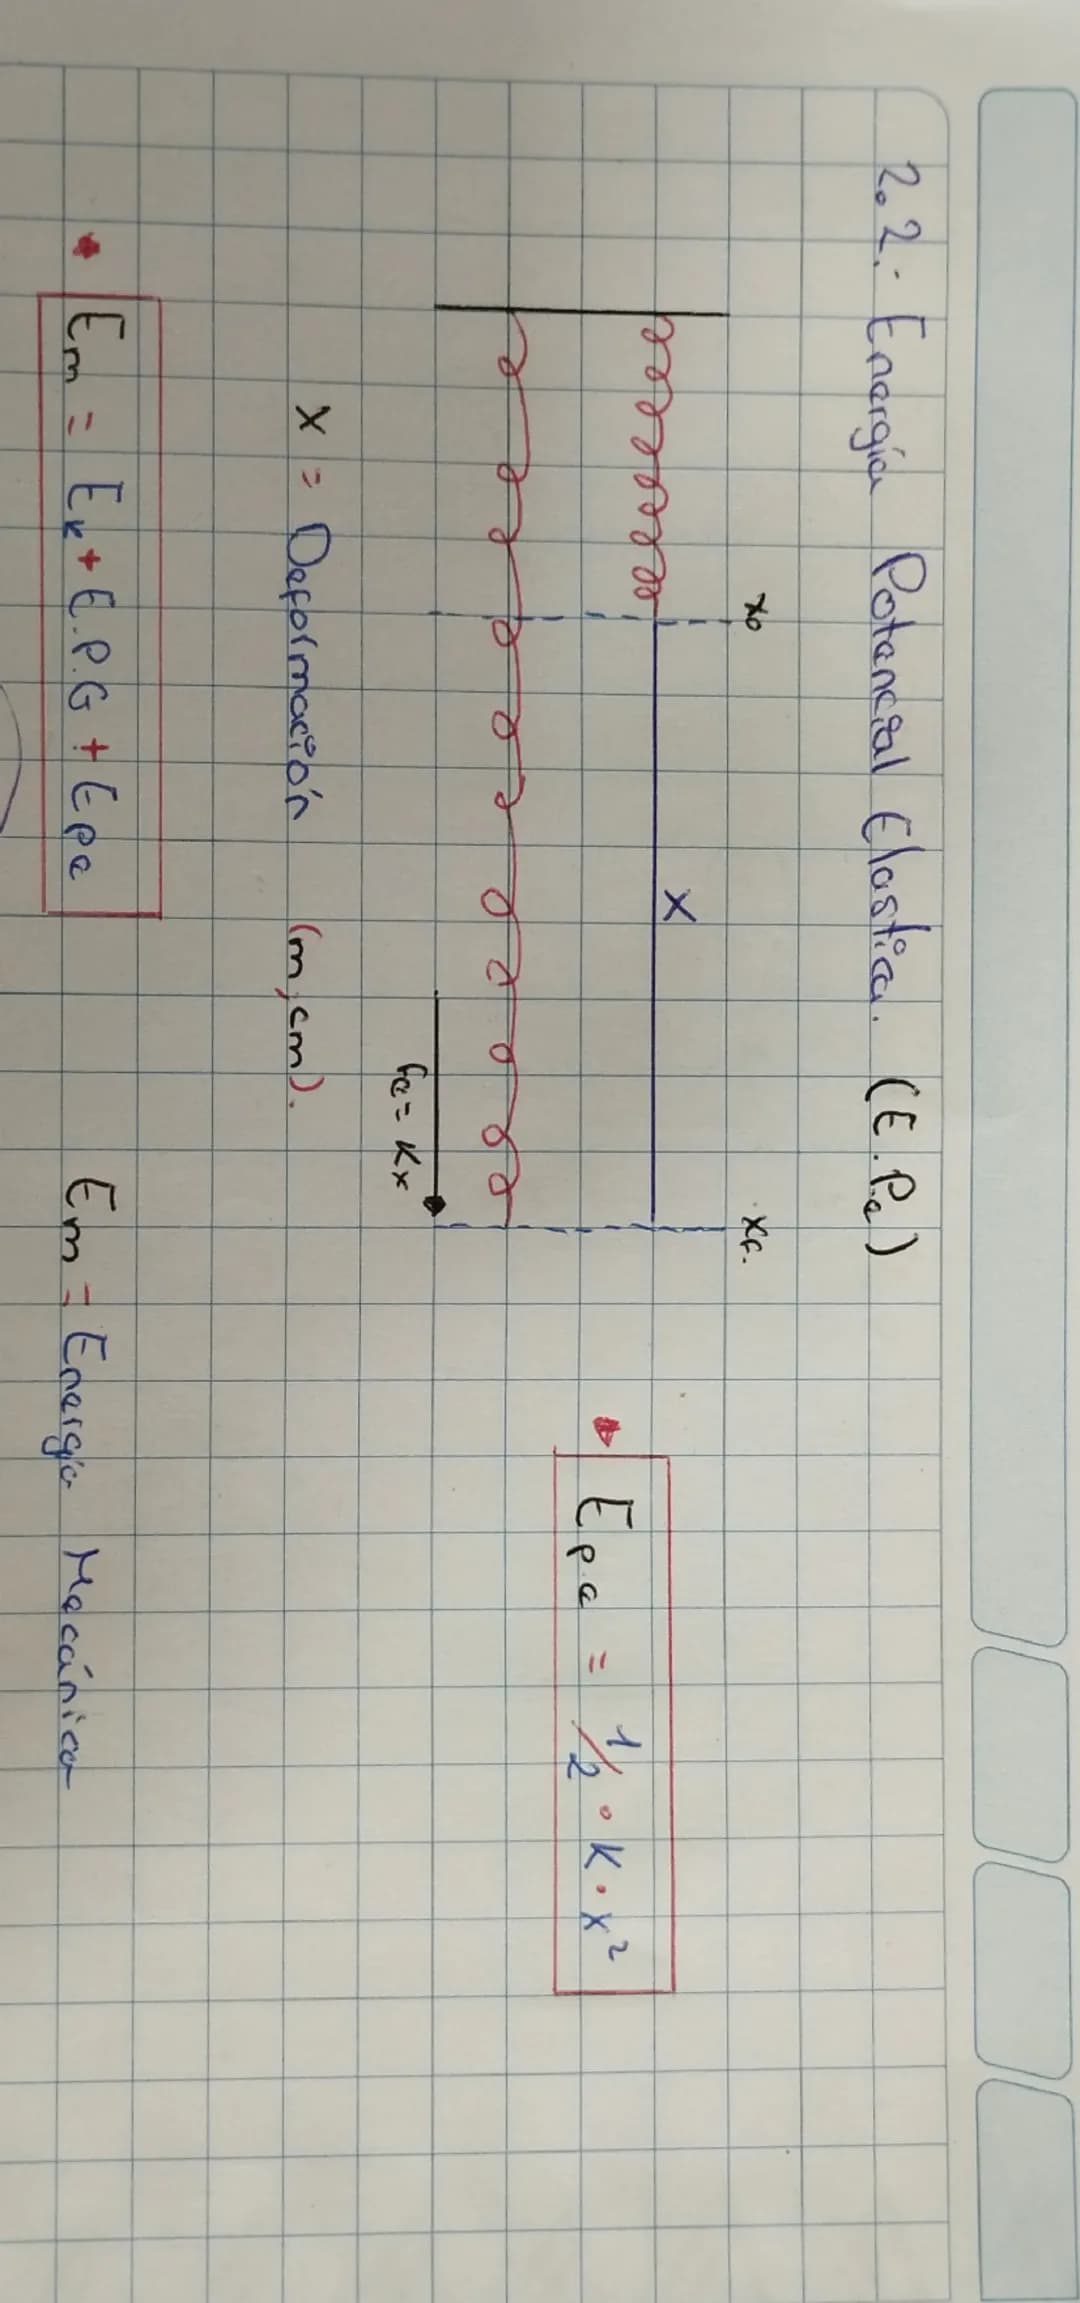 2.2.- Energía Potencial Elastica. (E.Pe)
x₀
xF.
X
Epe = 1/2 • K • x²
fe = Kx
X = Deformación (m, cm).
Em = Ek + E.P.G + Epe
Em = Energía Mecánica